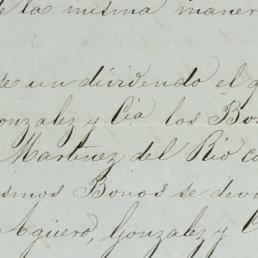 de la misma maner
se un dividendo el q
onzalez y Cia los Bo
Martinez del Rio co
smos Bonos se dev
Agüero, Gonzalez y C